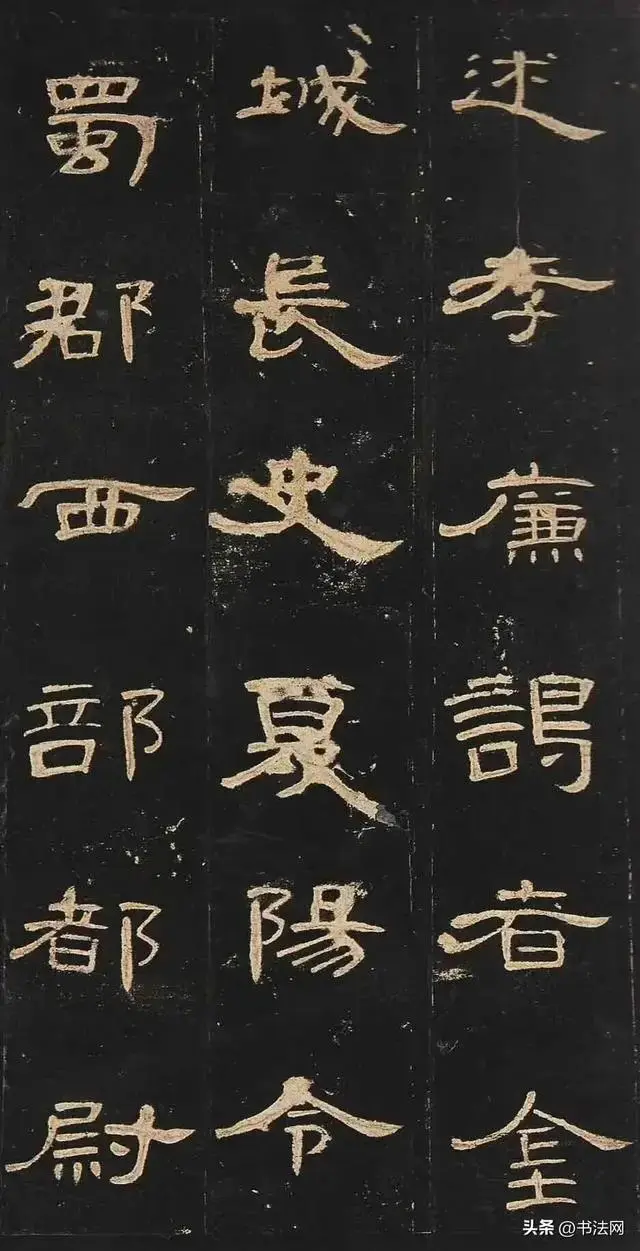 述孝廉謁者金
城長史夏陽令
蜀郡西部都尉
头条 @书法网